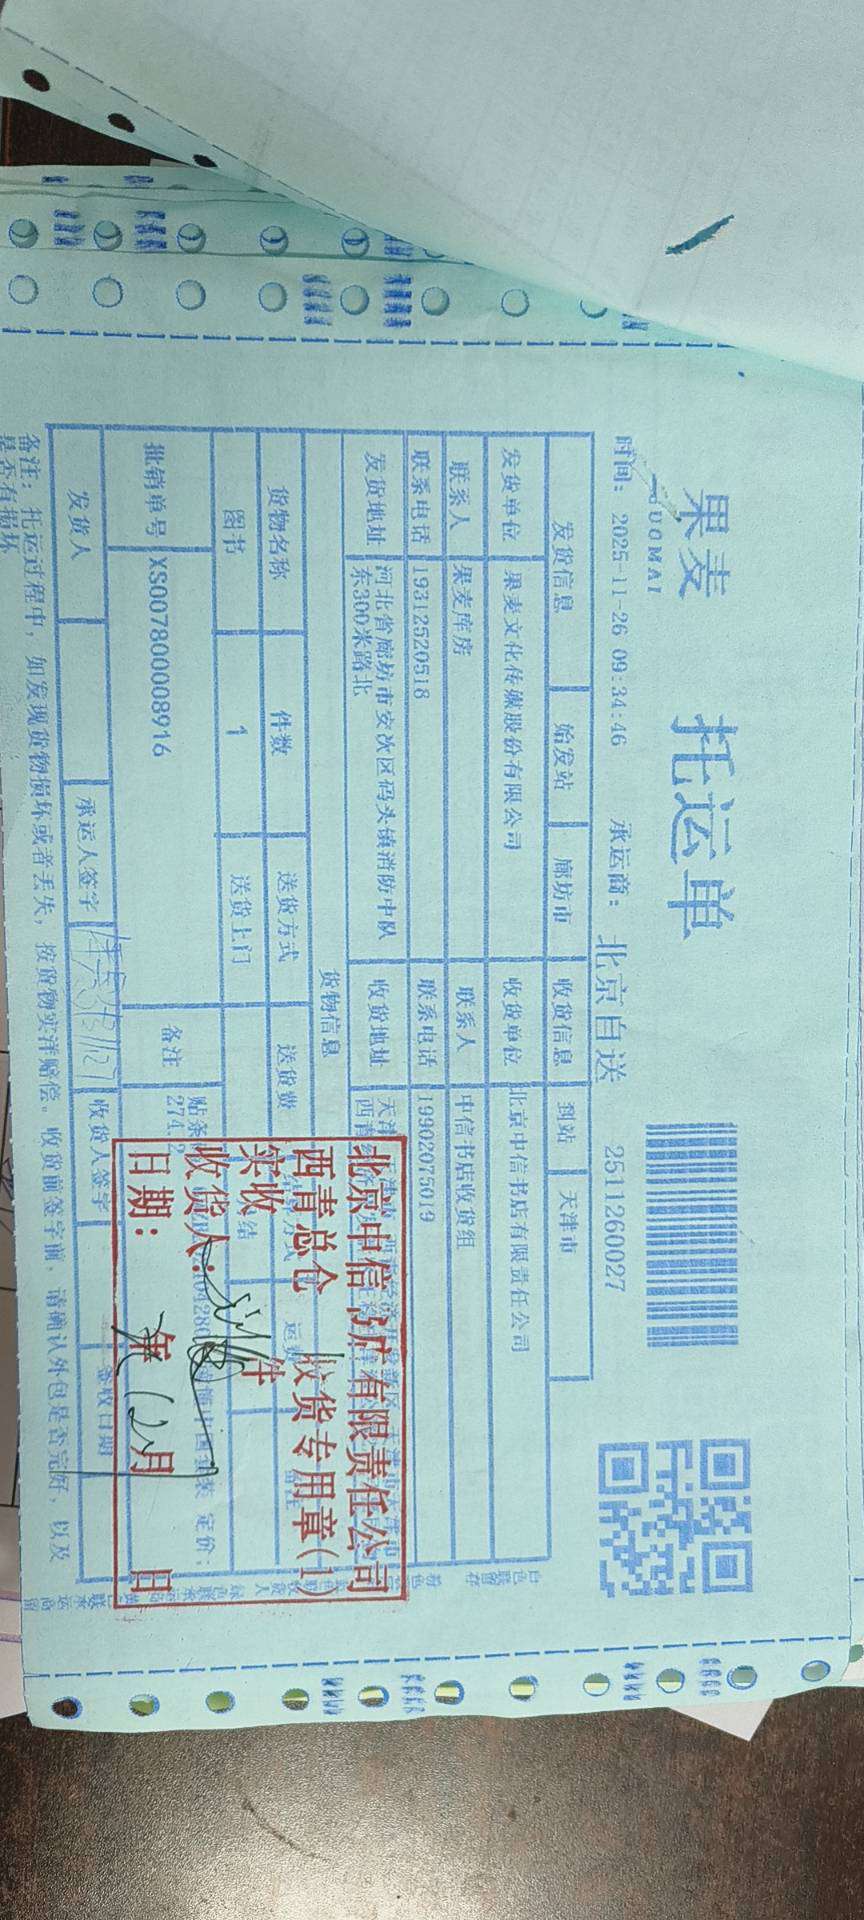 果麦
GUOMAI
托运单
时间: 2025-11-26 09:34:46 承运商: 北京自送 2511260027
发货信息 始发站 廊坊市 收货信息 到站 天津市
发货单位 果麦文化传媒股份有限公司 收货单位 北京中信书店有限责任公司
联系人 果麦库房 联系人 中信书店收货组
联系电话 19312520518 联系电话 19902075019
发货地址 河北省廊坊市安次区码头镇消防中队东300米路北 收货地址
货物信息
货物名称 件数 送货方式 送货费
图书 1 送货上门
批销单号 XS007800008916 备注 贴条
274.2 定价:
发货人 承运人签字 收货人签字 签收日期
备注: 托运过程中, 如发现货物损坏或者丢失, 按货物实洋赔偿。收货前签字前, 请确认外包是否完好, 以及
是否有损坏
北京中信书店有限责任公司
西青总仓 收货专用章(1)
实收 件
收货人:
日期: 年 12月 日